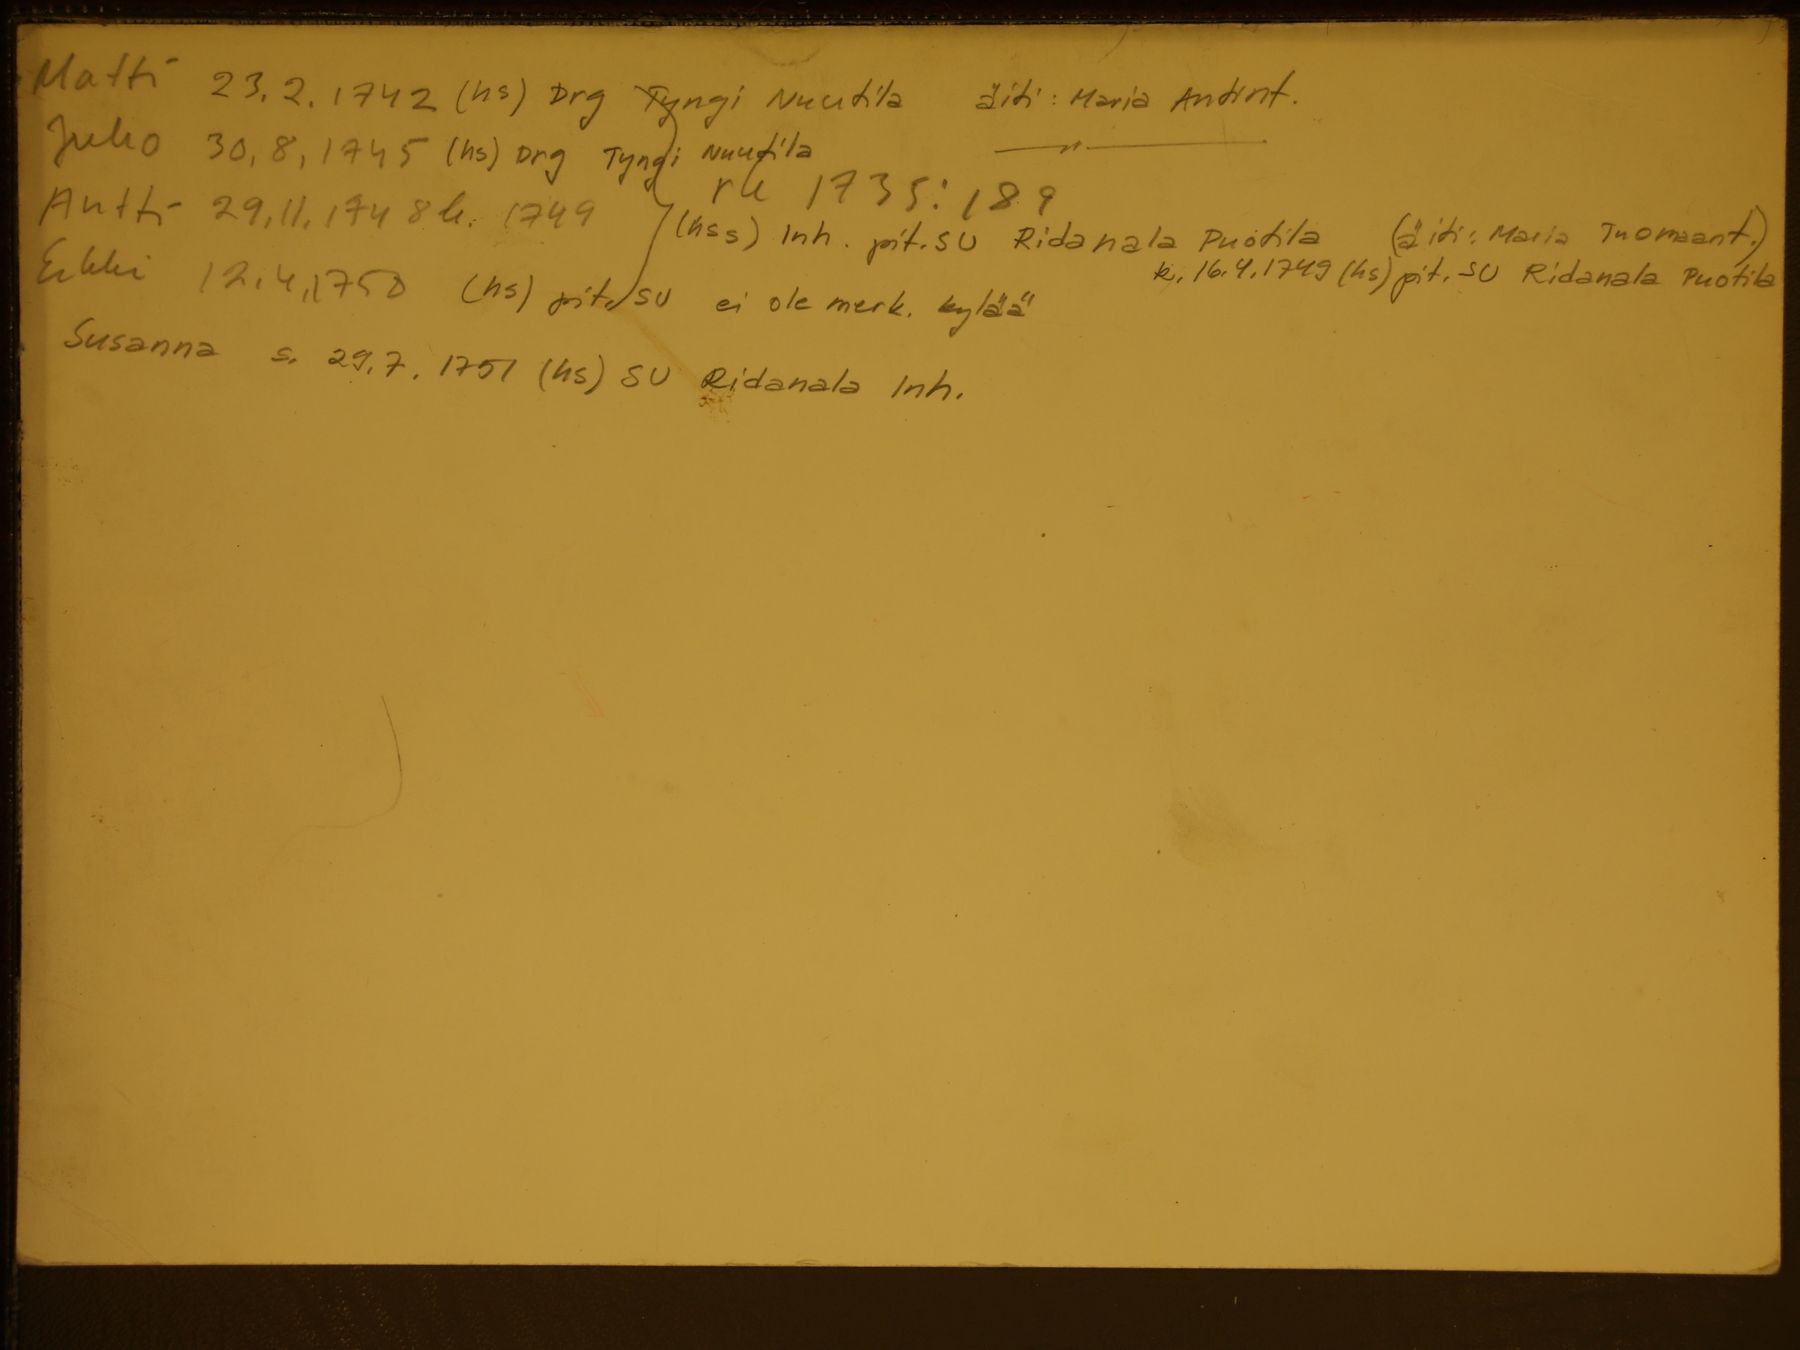 Matti 23.2.1742 (hs) Drg Tyngi Nuutila äiti: Maria Antint.
Juho 30.8.1745 (hs) Drg Tyngi Nuutila —"—
rk 1735:189
Antti 29.11.1748 k. 1749 (hss) Inh. pit. SU Ridanala Puotila (äiti: Maria Tuomaant.)
k. 16.4.1749 (hs) pit. SU Ridanala Puotila
Erkki 12.4.1750 (hs) pit. SU ei ole merk. kylää
Susanna s. 29.7.1751 (hs) SU Ridanala Inh.